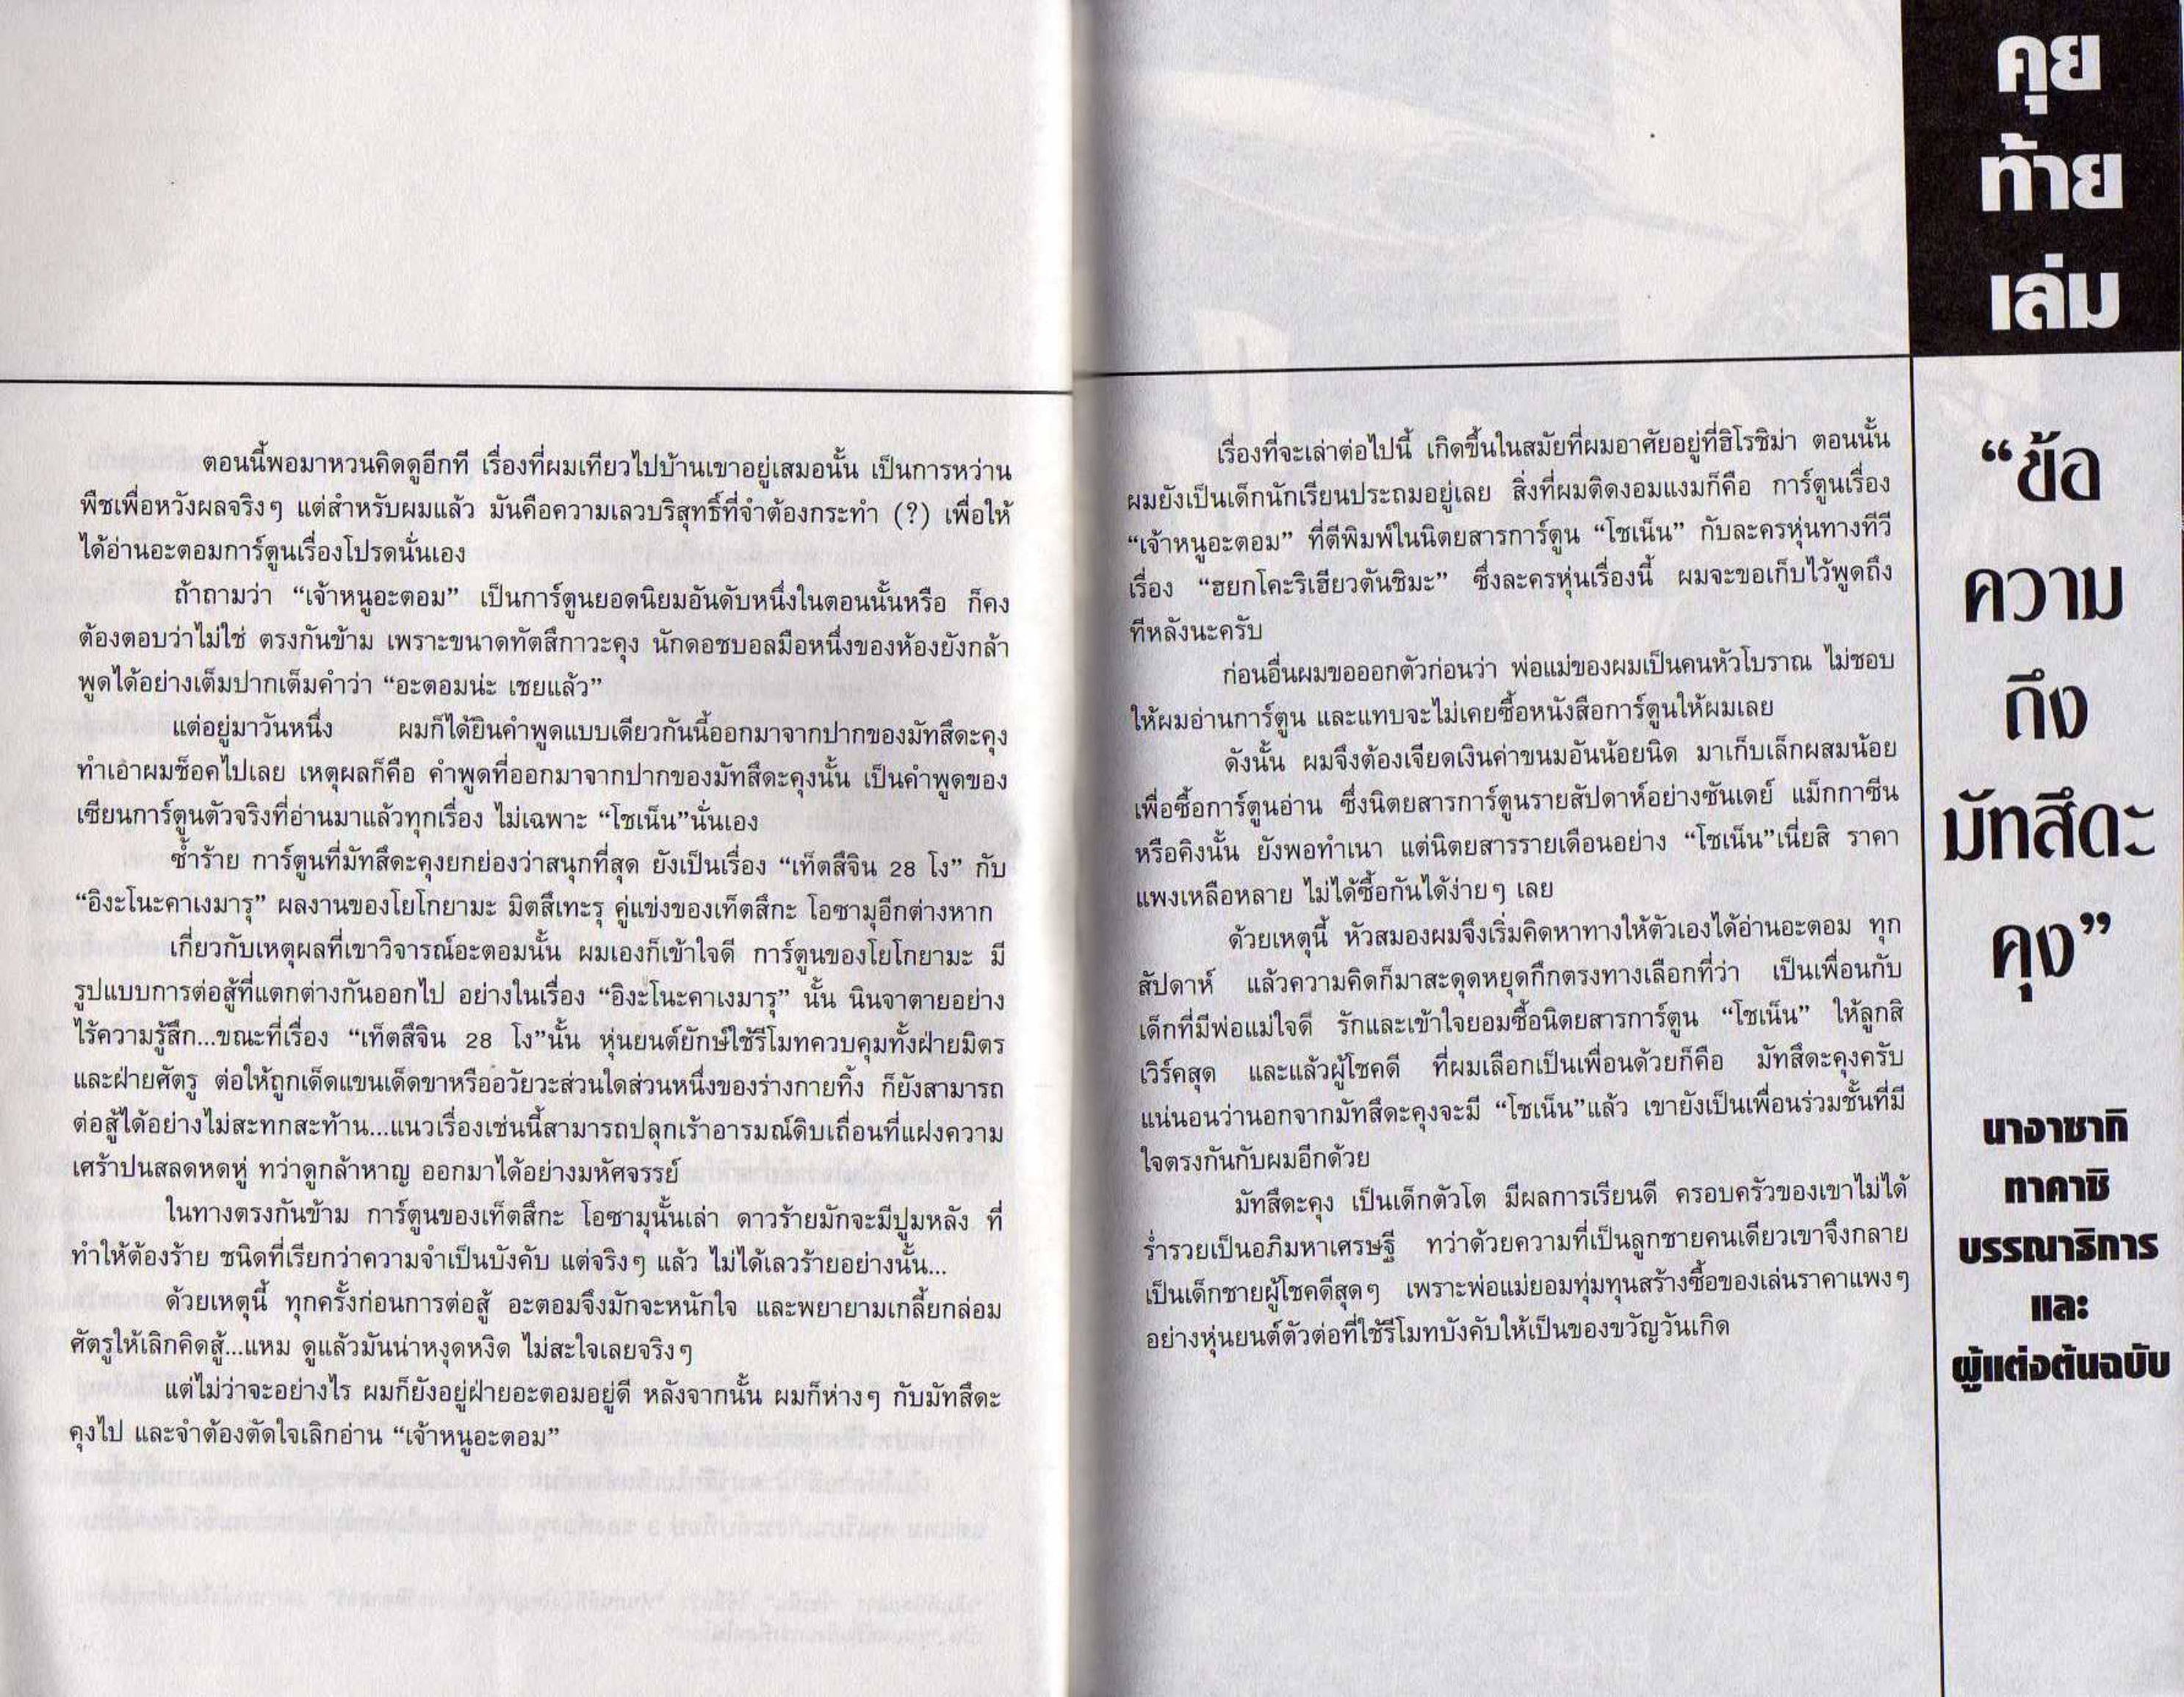 คุย
ท้าย
เล่ม
“ข้อ
ความ
ถึง
มัทสึดะ
คุง”
นางาซากิ
ทาคาชิ
บรรณาธิการ
และ
ผู้แต่งต้นฉบับ
เรื่องที่จะเล่าต่อไปนี้ เกิดขึ้นในสมัยที่ผมอาศัยอยู่ที่ฮิโรชิม่า ตอนนั้น
ผมยังเป็นเด็กนักเรียนประถมอยู่เลย สิ่งที่ผมติดงอมแงมก็คือ การ์ตูนเรื่อง
“เจ้าหนูอะตอม” ที่ตีพิมพ์ในนิตยสารการ์ตูน “โชเน็น” กับละครหุ่นทางทีวี
เรื่อง “ฮยกโคะริเฮียวตันชิมะ” ซึ่งละครหุ่นเรื่องนี้ ผมจะขอเก็บไว้พูดถึง
ทีหลังนะครับ
ก่อนอื่นผมขอออกตัวก่อนว่า พ่อแม่ของผมเป็นคนหัวโบราณ ไม่ชอบ
ให้ผมอ่านการ์ตูน และแทบจะไม่เคยซื้อหนังสือการ์ตูนให้ผมเลย
ดังนั้น ผมจึงต้องเจียดเงินค่าขนมอันน้อยนิด มาเก็บเล็กผสมน้อย
เพื่อซื้อการ์ตูนอ่าน ซึ่งนิตยสารการ์ตูนรายสัปดาห์อย่างซันเดย์ แม็กกาซีน
หรือคิงนั้น ยังพอทำเนา แต่นิตยสารรายเดือนอย่าง “โชเน็น”เนี่ยสิ ราคา
แพงเหลือหลาย ไม่ได้ซื้อกันได้ง่ายๆ เลย
ด้วยเหตุนี้ หัวสมองผมจึงเริ่มคิดหาทางให้ตัวเองได้อ่านอะตอม ทุก
สัปดาห์ แล้วความคิดก็มาสะดุดหยุดกึกตรงทางเลือกที่ว่า เป็นเพื่อนกับ
เด็กที่มีพ่อแม่ใจดี รักและเข้าใจยอมซื้อนิตยสารการ์ตูน “โชเน็น” ให้ลูกสิ
เวิร์คสุด และแล้วผู้โชคดี ที่ผมเลือกเป็นเพื่อนด้วยก็คือ มัทสึดะคุงครับ
แน่นอนว่านอกจากมัทสึดะคุงจะมี “โชเน็น”แล้ว เขายังเป็นเพื่อนร่วมชั้นที่มี
ใจตรงกันกับผมอีกด้วย
มัทสึดะคุง เป็นเด็กตัวโต มีผลการเรียนดี ครอบครัวของเขาไม่ได้
ร่ำรวยเป็นอภิมหาเศรษฐี ทว่าด้วยความที่เป็นลูกชายคนเดียวเขาจึงกลาย
เป็นเด็กชายผู้โชคดีสุดๆ เพราะพ่อแม่ยอมทุ่มทุนสร้างซื้อของเล่นราคาแพงๆ
อย่างหุ่นยนต์ตัวต่อที่ใช้รีโมทบังคับให้เป็นของขวัญวันเกิด
ตอนนี้พอมาหวนคิดดูอีกที เรื่องที่ผมเทียวไปบ้านเขาอยู่เสมอนั้น เป็นการหว่าน
พืชเพื่อหวังผลจริงๆ แต่สำหรับผมแล้ว มันคือความเลวบริสุทธิ์ที่จำต้องกระทำ (?) เพื่อให้
ได้อ่านอะตอมการ์ตูนเรื่องโปรดนั่นเอง
ถ้าถามว่า “เจ้าหนูอะตอม” เป็นการ์ตูนยอดนิยมอันดับหนึ่งในตอนนั้นหรือ ก็คง
ต้องตอบว่าไม่ใช่ ตรงกันข้าม เพราะขนาดทัตสึกาวะคุง นักดอชบอลมือหนึ่งของห้องยังกล้า
พูดได้อย่างเต็มปากเต็มคำว่า “อะตอมน่ะ เชยแล้ว”
แต่อยู่มาวันหนึ่ง ผมก็ได้ยินคำพูดแบบเดียวกันนี้ออกมาจากปากของมัทสึดะคุง
ทำเอาผมช็อคไปเลย เหตุผลก็คือ คำพูดที่ออกมาจากปากของมัทสึดะคุงนั้น เป็นคำพูดของ
เซียนการ์ตูนตัวจริงที่อ่านมาแล้วทุกเรื่อง ไม่เฉพาะ “โชเน็น”นั่นเอง
ซ้ำร้าย การ์ตูนที่มัทสึดะคุงยกย่องว่าสนุกที่สุด ยังเป็นเรื่อง “เท็ตสึจิน 28 โง” กับ
“อิงะโนะคาเงมารุ” ผลงานของโยโกยามะ มิตสึเทะรุ คู่แข่งของเท็ตสึกะ โอซามุอีกต่างหาก
เกี่ยวกับเหตุผลที่เขาวิจารณ์อะตอมนั้น ผมเองก็เข้าใจดี การ์ตูนของโยโกยามะ มี
รูปแบบการต่อสู้ที่แตกต่างกันออกไป อย่างในเรื่อง “อิงะโนะคาเงมารุ” นั้น นินจาตายอย่าง
ไร้ความรู้สึก...ขณะที่เรื่อง “เท็ตสึจิน 28 โง”นั้น หุ่นยนต์ยักษ์ใช้รีโมทควบคุมทั้งฝ่ายมิตร
และฝ่ายศัตรู ต่อให้ถูกเด็ดแขนเด็ดขาหรืออวัยวะส่วนใดส่วนหนึ่งของร่างกายทิ้ง ก็ยังสามารถ
ต่อสู้ได้อย่างไม่สะทกสะท้าน...แนวเรื่องเช่นนี้สามารถปลุกเร้าอารมณ์ดิบเถื่อนที่แฝงความ
เศร้าปนสลดหดหู่ ทว่าดูกล้าหาญ ออกมาได้อย่างมหัศจรรย์
ในทางตรงกันข้าม การ์ตูนของเท็ตสึกะ โอซามุนั้นเล่า ดาวร้ายมักจะมีปูมหลัง ที่
ทำให้ต้องร้าย ชนิดที่เรียกว่าความจำเป็นบังคับ แต่จริงๆ แล้ว ไม่ได้เลวร้ายอย่างนั้น...
ด้วยเหตุนี้ ทุกครั้งก่อนการต่อสู้ อะตอมจึงมักจะหนักใจ และพยายามเกลี้ยกล่อม
ศัตรูให้เลิกคิดสู้...แหม ดูแล้วมันน่าหงุดหงิด ไม่สะใจเลยจริงๆ
แต่ไม่ว่าจะอย่างไร ผมก็ยังอยู่ฝ่ายอะตอมอยู่ดี หลังจากนั้น ผมก็ห่างๆ กับมัทสึดะ
คุงไป และจำต้องตัดใจเลิกอ่าน “เจ้าหนูอะตอม”